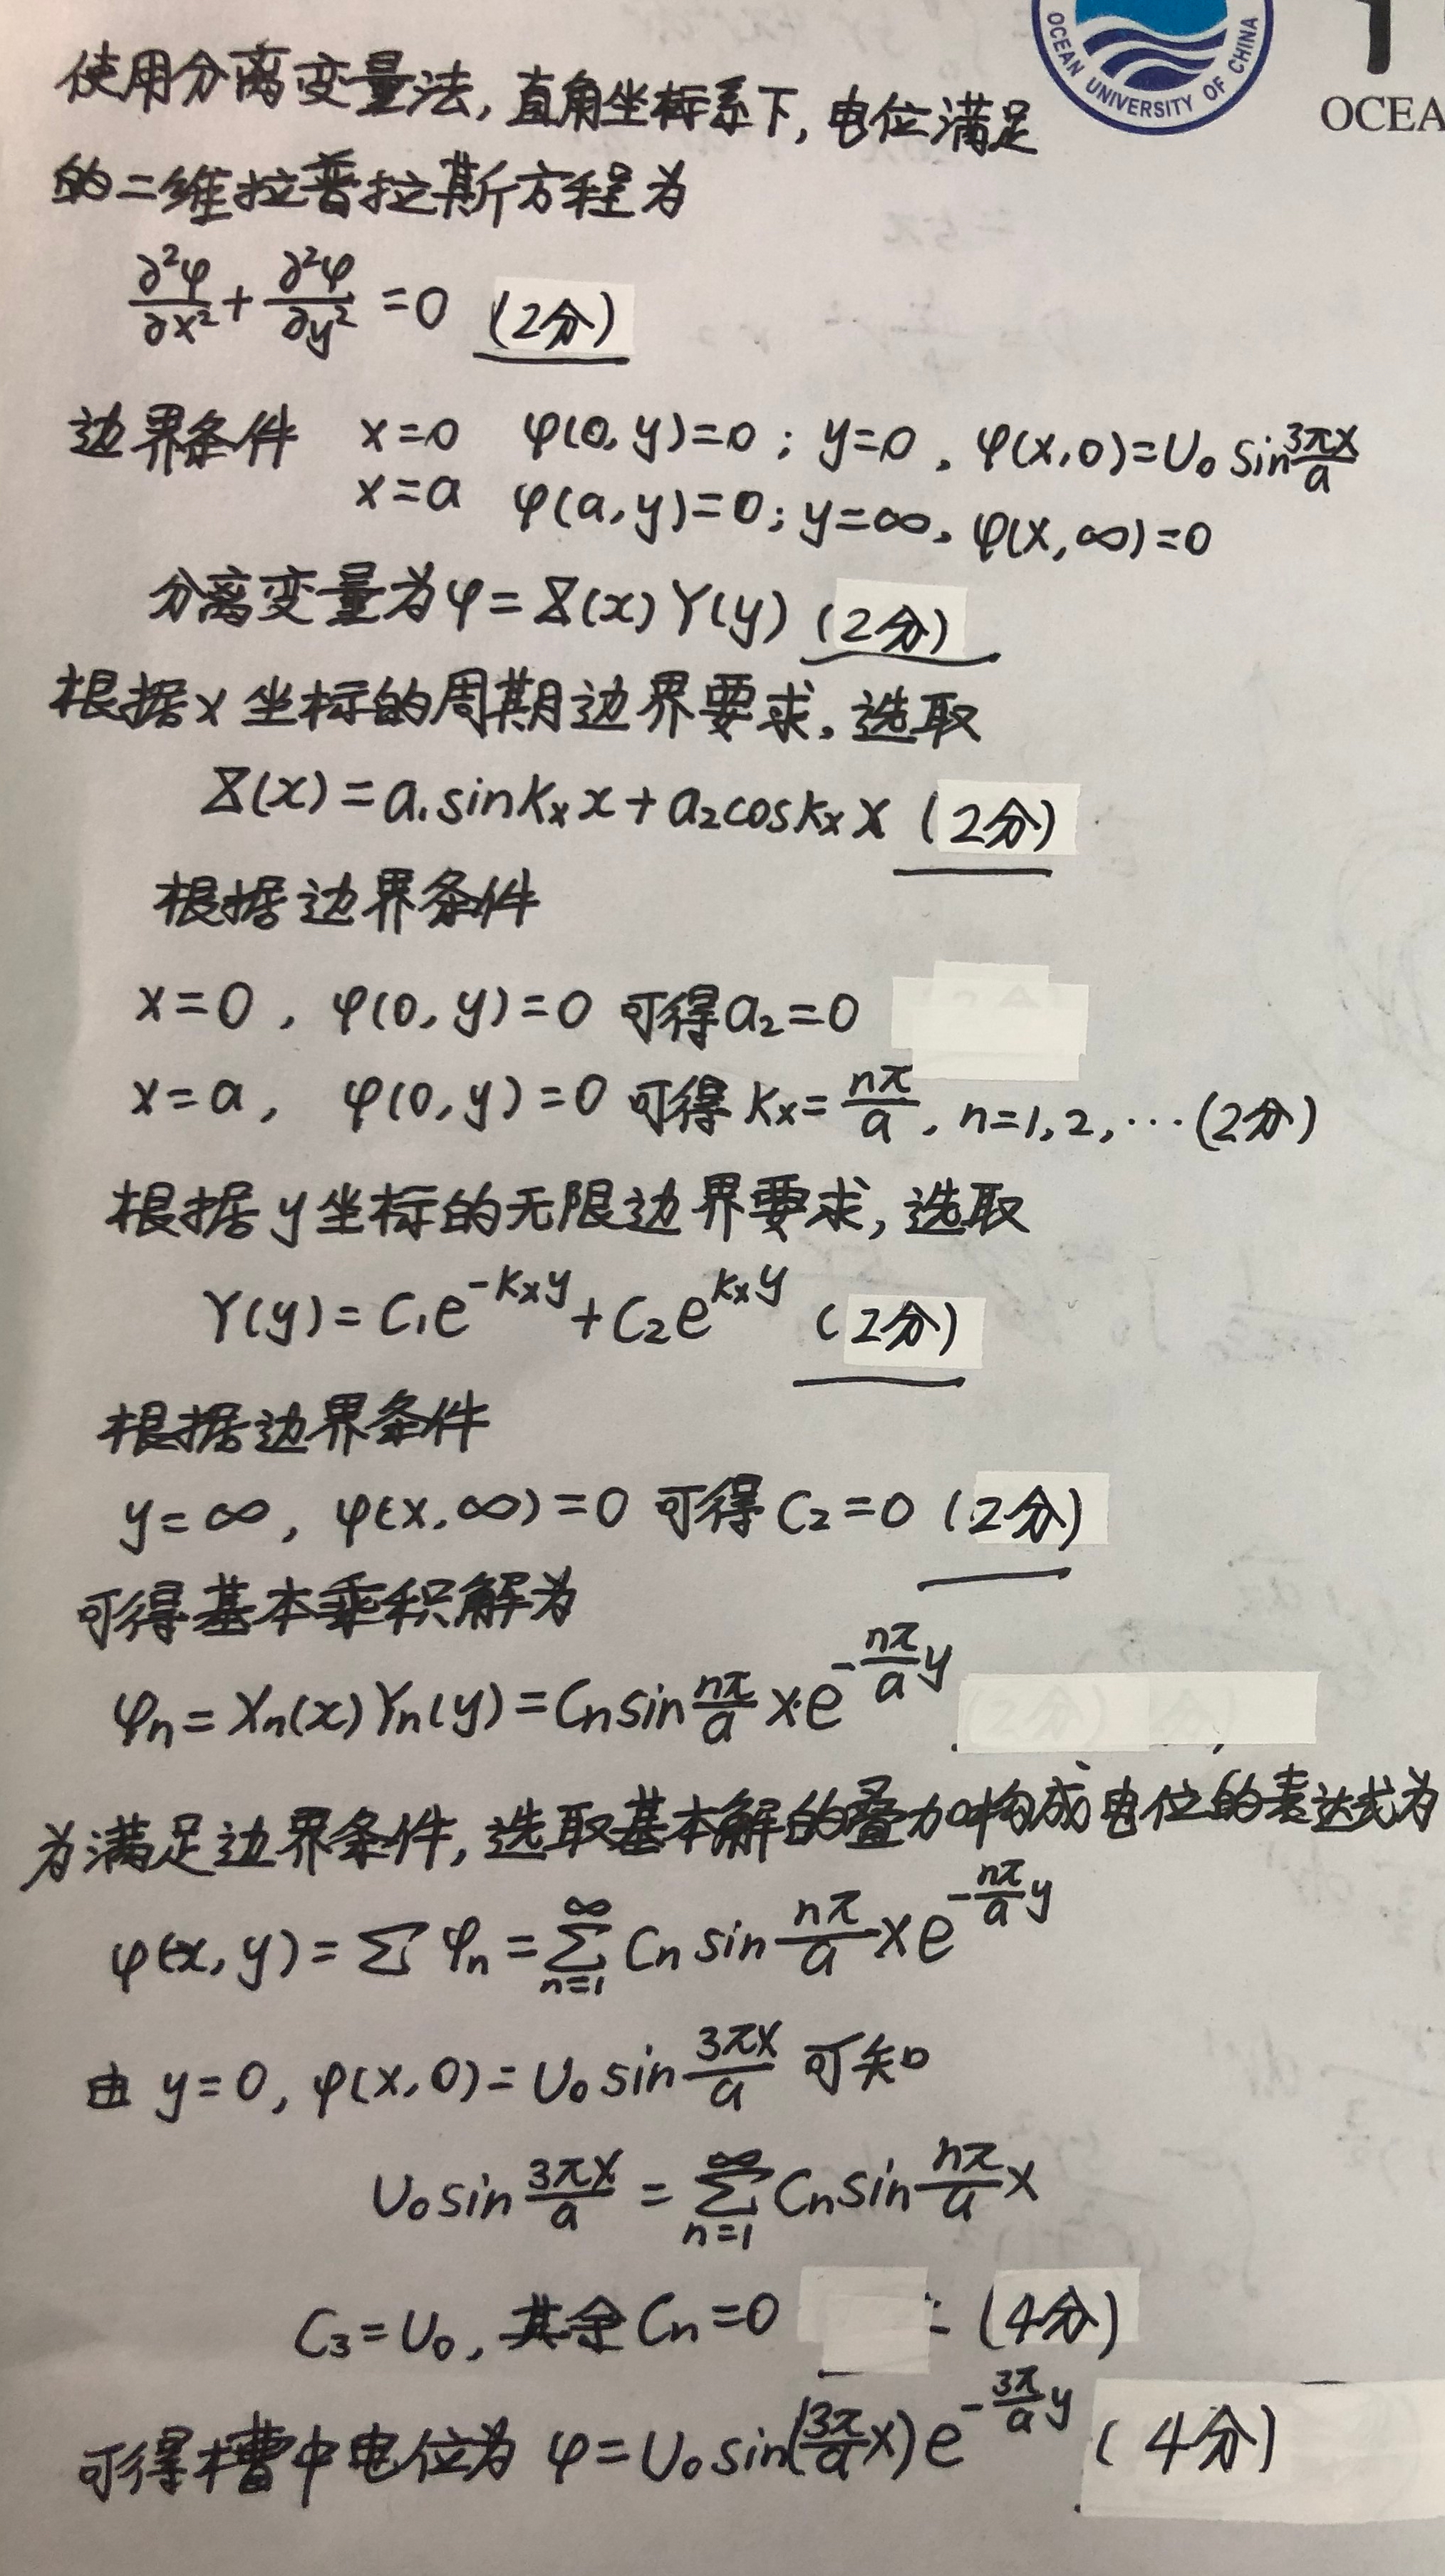 OCEAN UNIVERSITY OF CHINA
OCEA
使用分离变量法,直角坐标系下,电位满足
的二维拉普拉斯方程为
∂²φ/∂x² + ∂²φ/∂y² = 0 (2分)
边界条件 x=0 φ(0,y)=0; y=0, φ(x,0)=U₀ sin 3πx/a
x=a φ(a,y)=0; y=∞, φ(x,∞)=0
分离变量为φ=X(x)Y(y) (2分)
根据x坐标的周期边界要求,选取
X(x)=a₁sinkₓx+a₂coskₓx (2分)
根据边界条件
x=0, φ(0,y)=0 可得a₂=0
x=a, φ(0,y)=0 可得 kₓ=nπ/a, n=1,2,…(2分)
根据y坐标的无限边界要求,选取
Y(y)=C₁e^{-kₓy}+C₂e^{kₓy} (2分)
根据边界条件
y=∞, φ(x,∞)=0 可得C₂=0 (2分)
可得基本乘积解为
φn=Xn(x)Yn(y)=Cn sin nπ/a x·e^{-nπ/a y}
为满足边界条件,选取基本解的叠加构成电位的表达式为
φ(x,y)=∑φn=∑_{n=1}^{∞} Cn sin nπ/a x e^{-nπ/a y}
由 y=0, φ(x,0)=U₀ sin 3πx/a 可知
U₀ sin 3πx/a = ∑_{n=1}^{∞} Cn sin nπ/a x
C₃=U₀, 其余Cn=0 (4分)
可得槽中电位为 φ=U₀ sin(3π/a x) e^{-3π/a y} (4分)